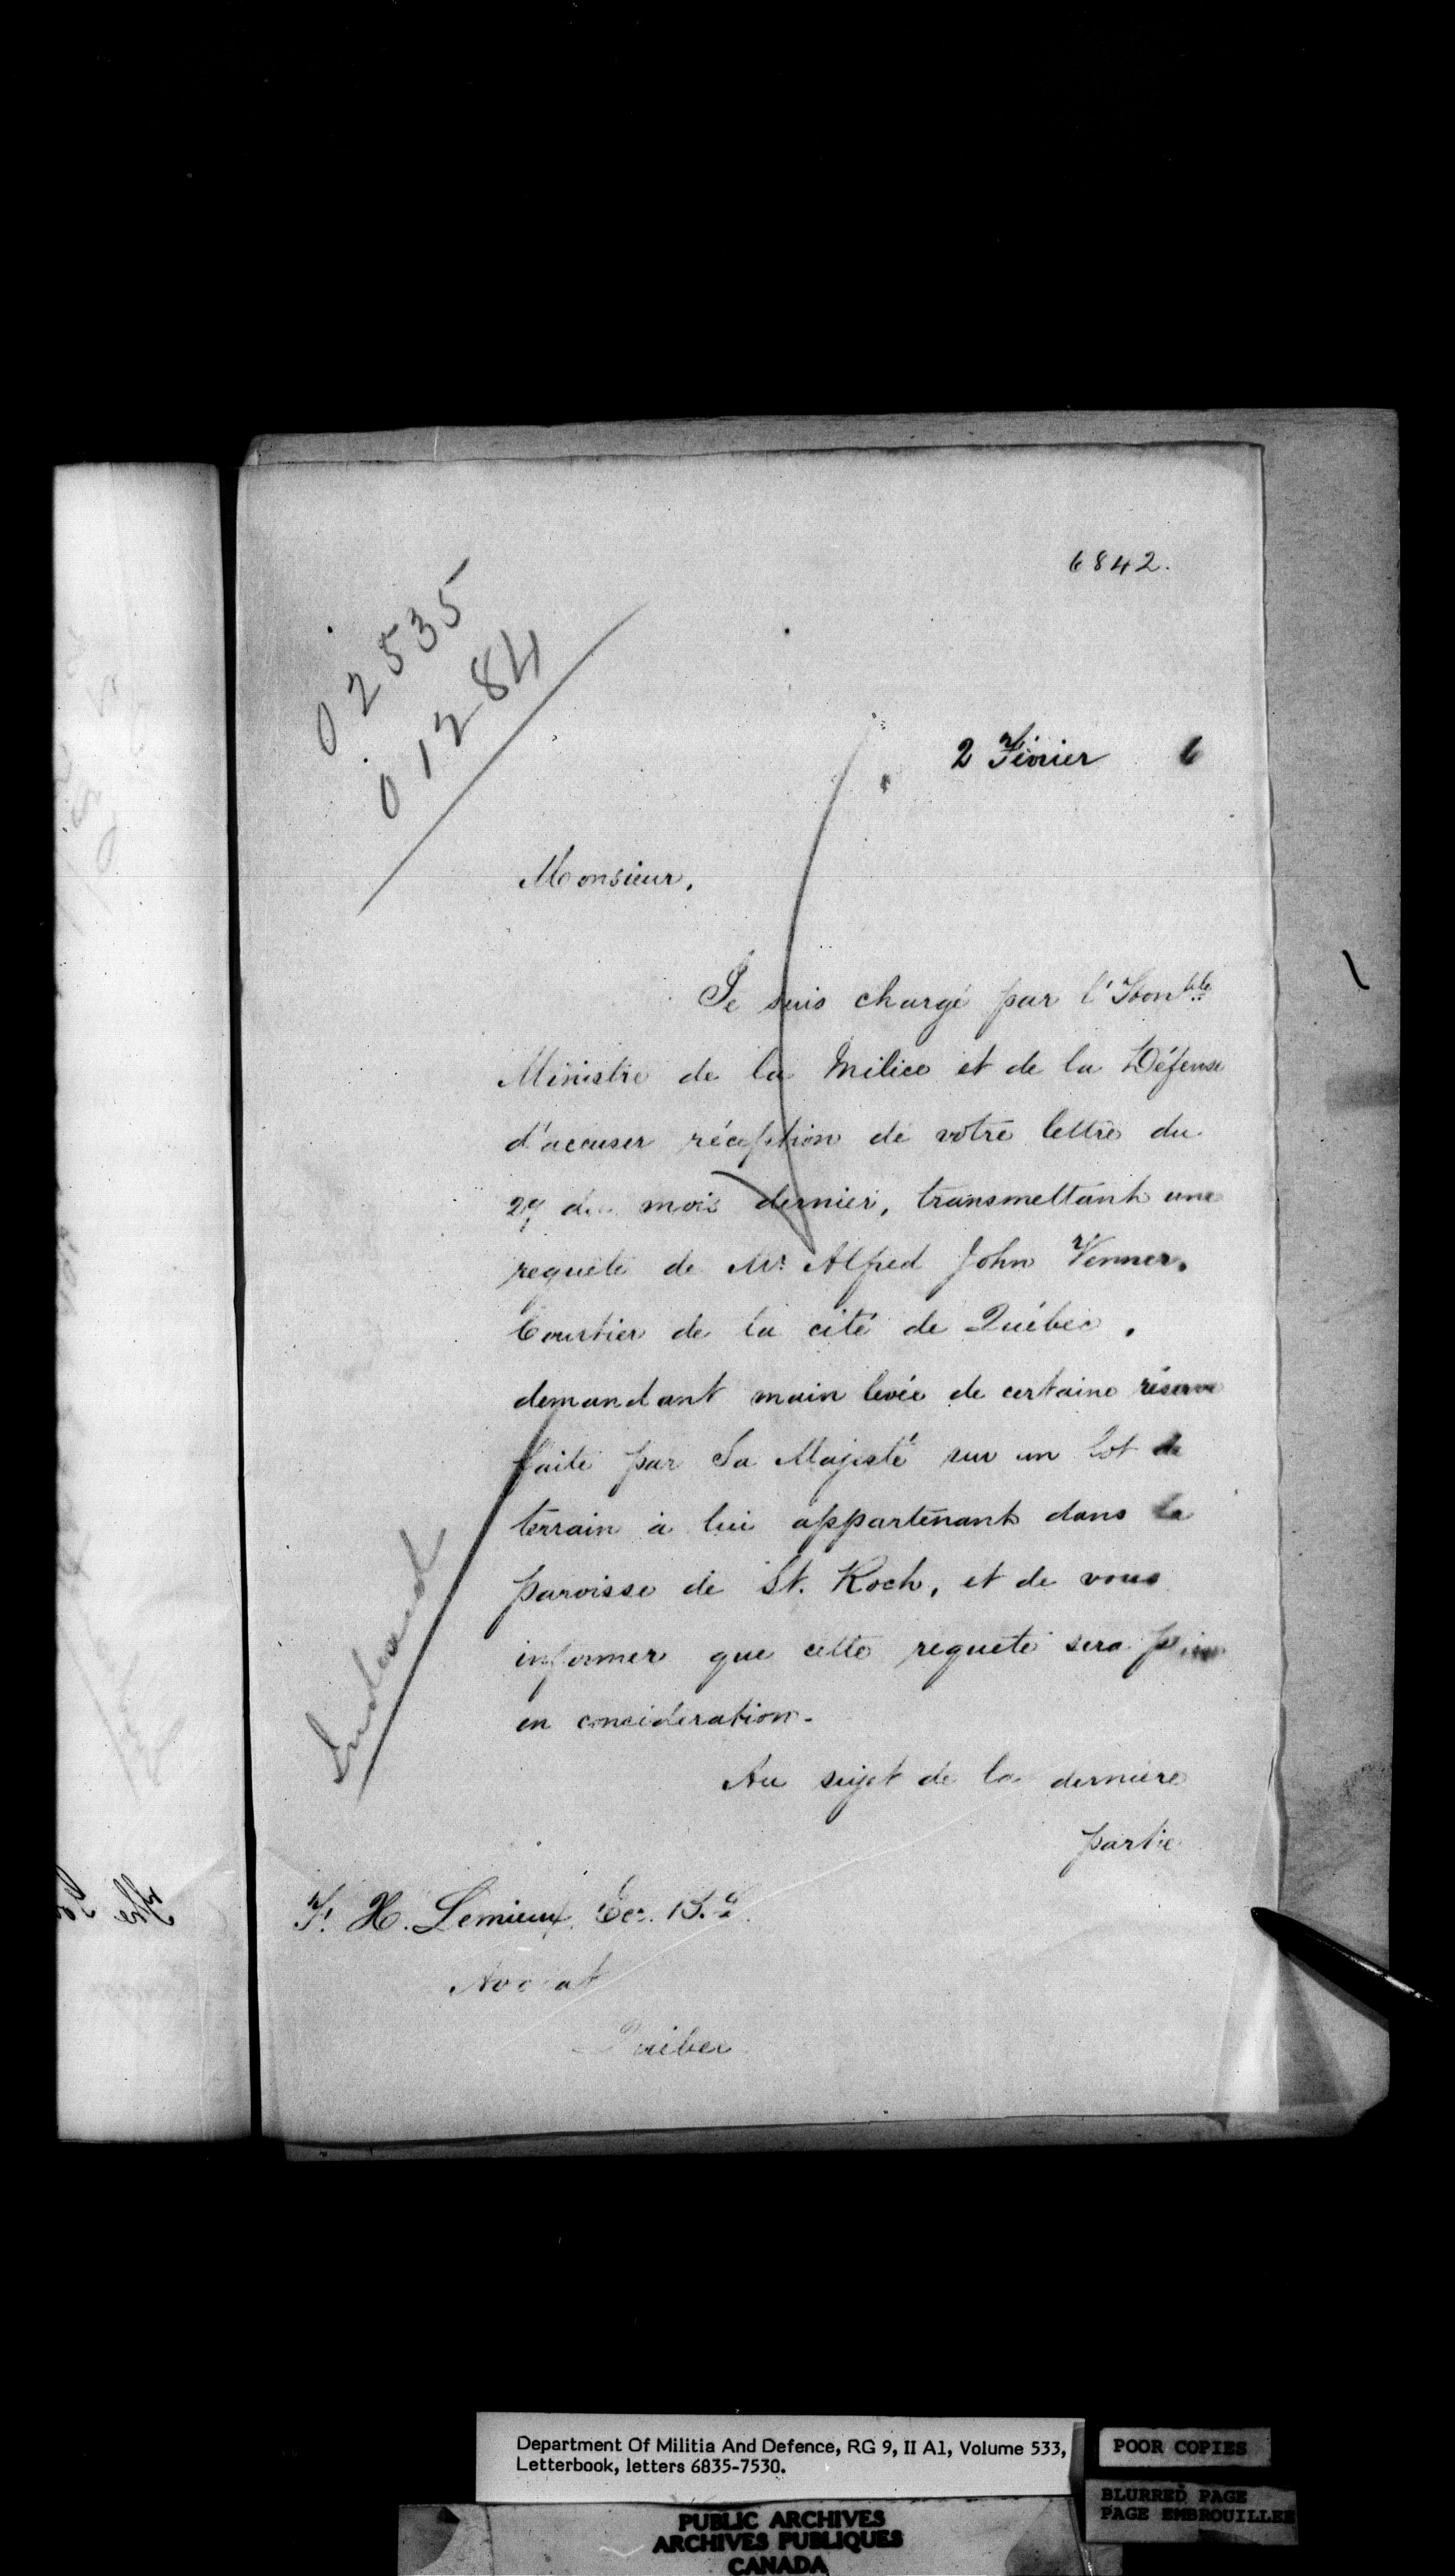 6842.
02535
01284
2 Février 6
Monsieur,
Je suis chargé par l'Honble
Ministre de la Milice et de la Défense
d'accuser réception de votre lettre du
29 du mois dernier, transmettant une
requête de Mr Alfred John Venner,
Courtier de la cité de Québec,
demandant main levée de certaine réserve
faite par Sa Majesté sur un lot de
terrain à lui appartenant dans la
paroisse de St. Roch, et de vous
informer que cette requête sera prise
en consideration.
Au sujet de la dernière
partie
F. X. Lemieux, Ecr.
Avocat
Québec
Department Of Militia And Defence, RG 9, II A1, Volume 533,
Letterbook, letters 6835-7530.
POOR COPIES
BLURRED PAGE
PAGE EMBROUILLEE
PUBLIC ARCHIVES
ARCHIVES PUBLIQUES
CANADA